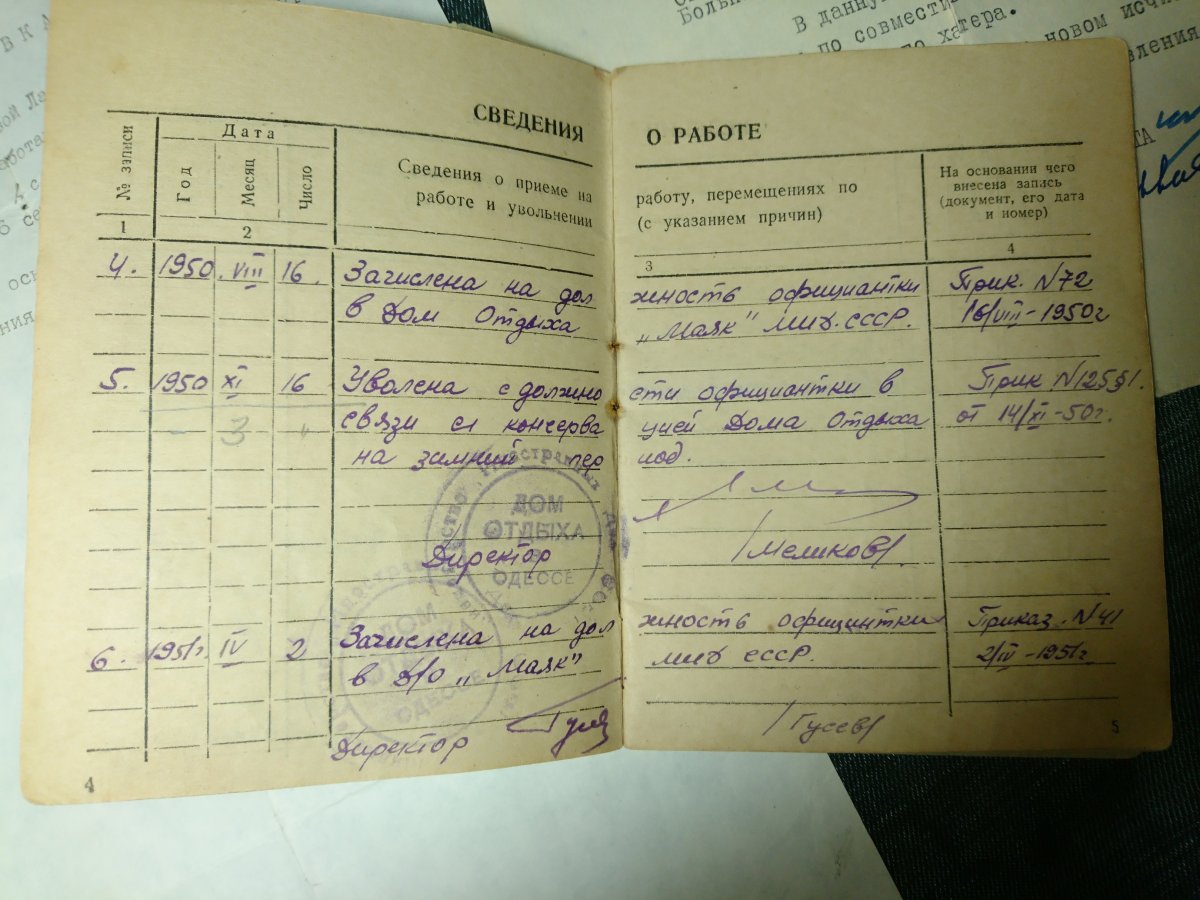 В К А
вой Ла
работа
6 се
осн
ния
Больн
В данную
по совмести
по хатера.
новом исчис
вления
СВЕДЕНИЯ О РАБОТЕ
№ записи
Дата
Год
Месяц
Число
Сведения о приеме на работу, перемещениях по
работе и увольнении (с указанием причин)
На основании чего
внесена запись
(документ, его дата
и номер)
1 2 3 4
4. 1950 VIII 16. Зачислена на должность официантки Прик. N72
в Дом Отдыха „Маяк" МИД.СССР. 16/VIII-1950г
5. 1950 XI 16 Уволена с должности официантки в Прик N125§1.
3 связи с консервацией Дома Отдыха от 14/XI-50г.
на зимний период.
ДОМ
ОТДЫХА
В
ОДЕССЕ
Директор /Меликов/
6. 1951г. IV 2 Зачислена на должность официантки Приказ. N41
в Д/О „Маяк" МИД СССР. 2/IV-1951г.
ДОМ
ОДЕССЕ
Директор /Гусев/
4 5